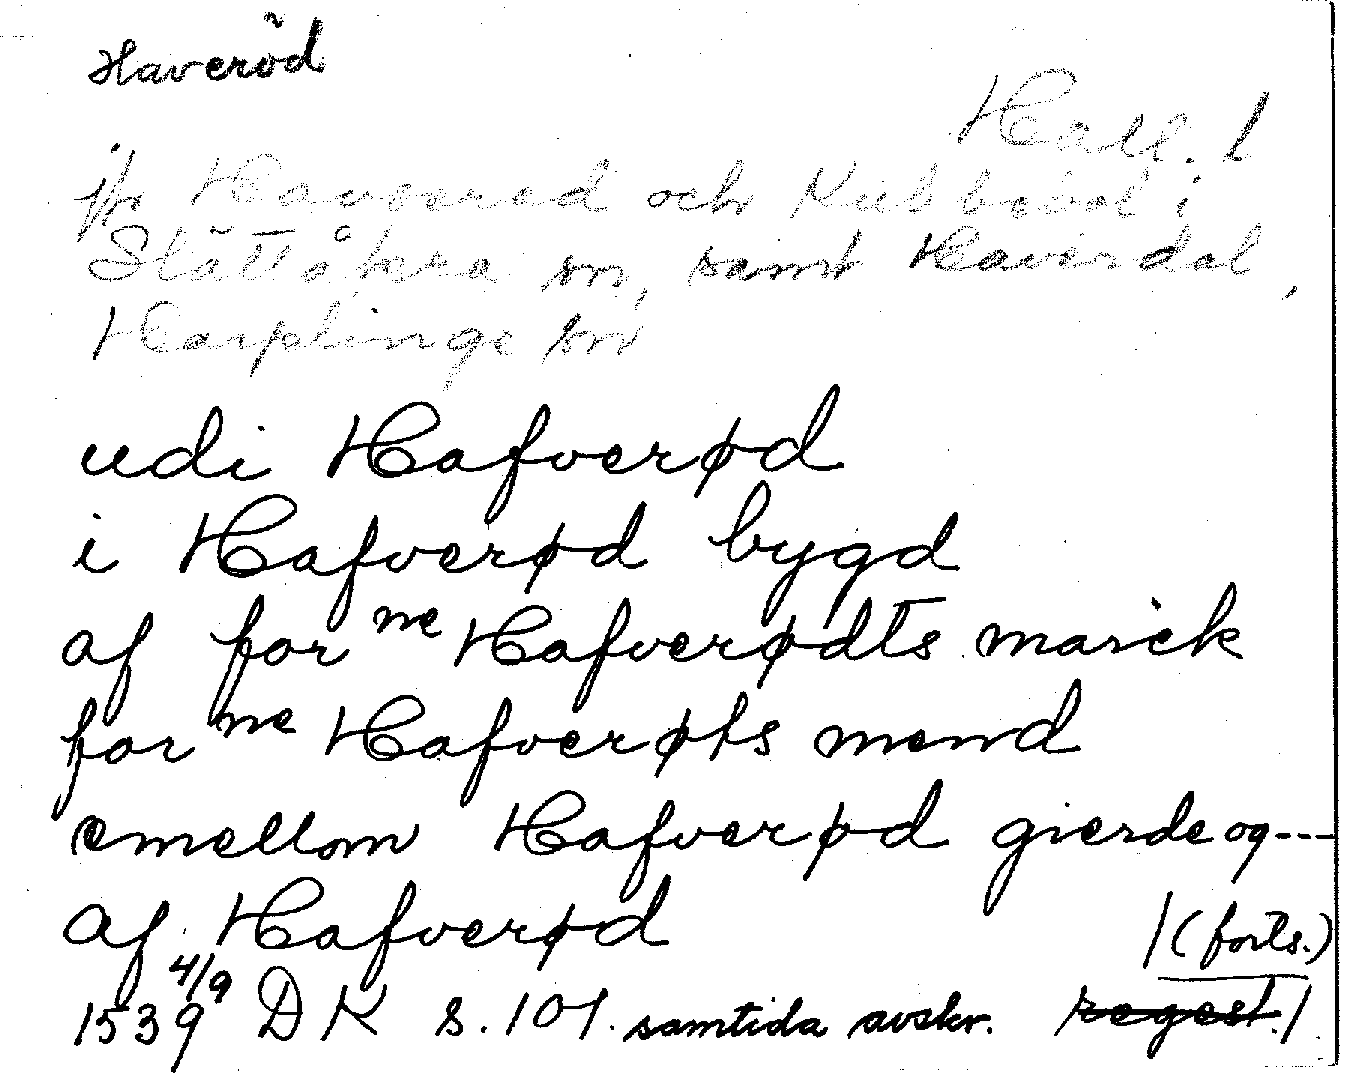 Haveröd
Hall. l
jfr Havsered och Kubbeböl i
Slättåkra sn, samt Haverdal,
Harplinge sn
udi Hafverød
i Hafverød bygd
af for ne Hafverødts marck
for ne Hafverøts mend
emellom Hafverød gierde og---
af Hafverød
/(forts.)
1539 4/9 DK s. 101. samtida avskr. regest./